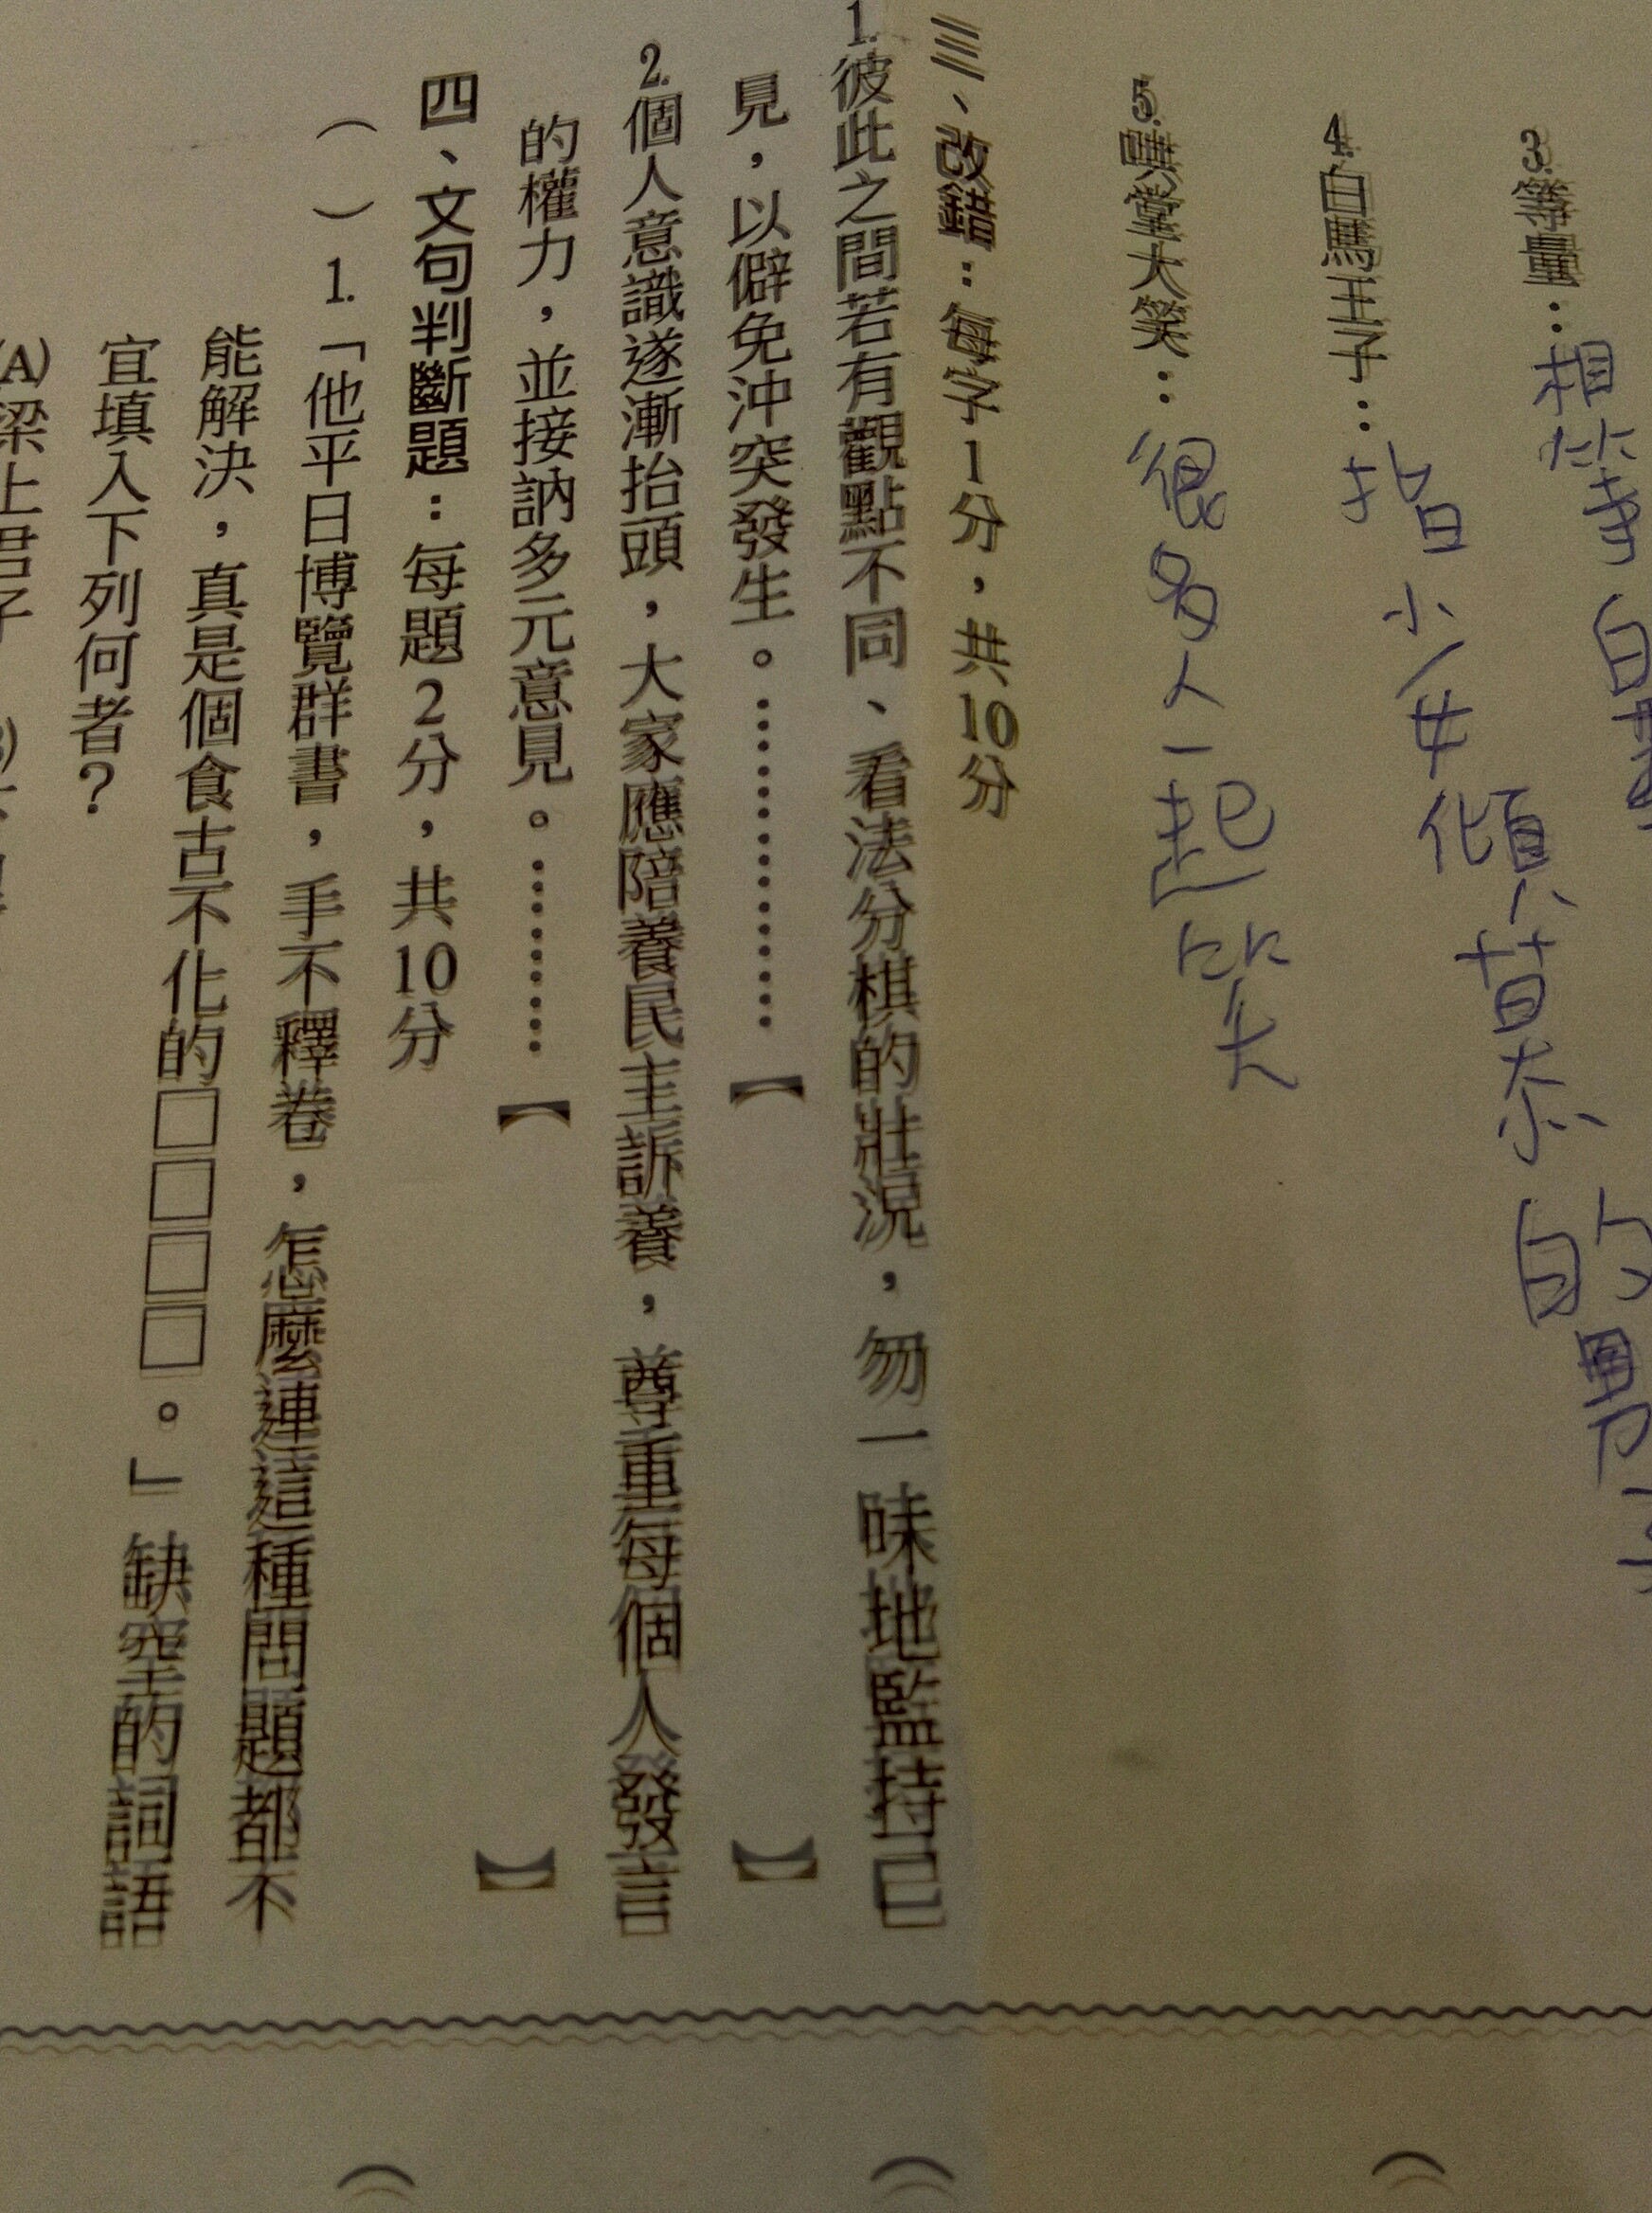 3.等量：相等自量
4.白馬王子：指少女傾慕的男子
5.哄堂大笑：很多人一起笑
三、改錯：每字1分，共10分
1.彼此之間若有觀點不同、看法分棋的壯況，勿一味地監持己
見，以僻免沖突發生。……………【　】
2.個人意識遂漸抬頭，大家應陪養民主訴養，尊重每個人發言
的權力，並接訥多元意見。…………【　】
四、文句判斷題：每題2分，共10分
（　）1.「他平日博覽群書，手不釋卷，怎麼連這種問題都不
能解決，真是個食古不化的□□□□。」缺空的詞語
宜填入下列何者？
(A)梁上君子